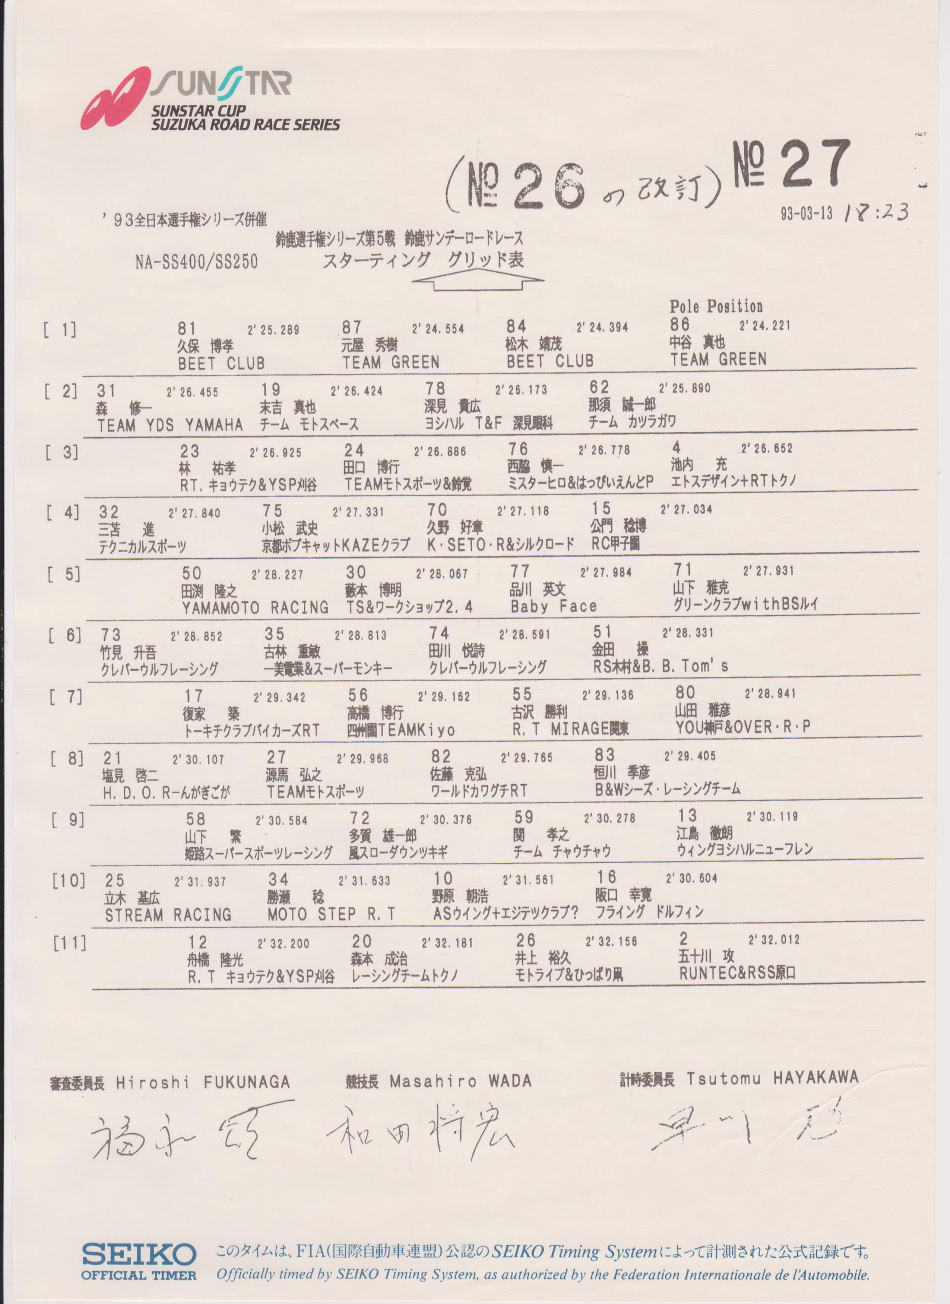 SUNSTAR
SUNSTAR CUP
SUZUKA ROAD RACE SERIES
(№26の改訂) №27
93-03-13 18:23
'93全日本選手権シリーズ併催
鈴鹿選手権シリーズ第5戦 鈴鹿サンデーロードレース
NA-SS400/SS250 スターティング グリッド表
Pole Position
[ 1] 81 2'25.289 87 2'24.554 84 2'24.394 86 2'24.221
久保 博孝 元屋 秀樹 松木 靖茂 中谷 真也
BEET CLUB TEAM GREEN BEET CLUB TEAM GREEN
[ 2] 31 2'26.455 19 2'26.424 78 2'26.173 62 2'25.890
森 修一 末吉 真也 深見 貴広 那須 誠一郎
TEAM YDS YAMAHA チーム モトスペース ヨシハル T&F 深見眼科 チーム カツラガワ
[ 3] 23 2'26.925 24 2'26.886 76 2'26.778 4 2'26.652
林 祐孝 田口 博行 西脇 慎一 池内 充
RT.キョウテク&YSP刈谷 TEAMモトスポーツ&鈴覚 ミスターヒロ&はっぴいえんどP エトスデザイン+RTトクノ
[ 4] 32 2'27.840 75 2'27.331 70 2'27.118 15 2'27.034
三苫 進 小松 武史 久野 好章 公門 稔博
テクニカルスポーツ 京都ボブキャットKAZEクラブ K・SETO・R&シルクロード RC甲子園
[ 5] 50 2'28.227 30 2'28.067 77 2'27.984 71 2'27.931
田渕 隆之 藪本 博明 品川 英文 山下 雅克
YAMAMOTO RACING TS&ワークショップ2.4 Baby Face グリーンクラブwithBSルイ
[ 6] 73 2'28.852 35 2'28.813 74 2'28.591 51 2'28.331
竹見 升吾 古林 重敏 田川 悦詩 金田 操
クレバーウルフレーシング 一美電業&スーパーモンキー クレバーウルフレーシング RS木村&B.B.Tom's
[ 7] 17 2'29.342 56 2'29.162 55 2'29.136 80 2'28.941
復家 築 高橋 博行 古沢 勝利 山田 雅彦
トーキチクラブバイカーズRT 四州園TEAMKiyo R.T MIRAGE関東 YOU神戸&OVER・R・P
[ 8] 21 2'30.107 27 2'29.968 82 2'29.765 83 2'29.405
塩見 啓二 源馬 弘之 佐藤 克弘 恒川 季彦
H.D.O.R－んがぎごが TEAMモトスポーツ ワールドカワグチRT B&Wシーズ・レーシングチーム
[ 9] 58 2'30.584 72 2'30.376 59 2'30.278 13 2'30.119
山下 繁 多賀 雄一郎 関 孝之 江島 徹朗
姫路スーパースポーツレーシング 風スローダウンツキギ チーム チャウチャウ ウィングヨシハルニューフレン
[10] 25 2'31.937 34 2'31.633 10 2'31.561 16 2'30.604
立木 基広 勝瀬 稔 野原 朝浩 阪口 幸寛
STREAM RACING MOTO STEP R.T ASウイング+エジテツクラブ? フライング ドルフィン
[11] 12 2'32.200 20 2'32.181 26 2'32.156 2 2'32.012
舟橋 隆光 森本 成治 井上 裕久 五十川 攻
R.T キョウテク&YSP刈谷 レーシングチームトクノ モトライブ&ひっぱり凧 RUNTEC&RSS原口
審査委員長 Hiroshi FUKUNAGA 競技長 Masahiro WADA 計時委員長 Tsutomu HAYAKAWA
和田 将宏
SEIKO このタイムは、FIA(国際自動車連盟)公認のSEIKO Timing Systemによって計測された公式記録です。
OFFICIAL TIMER Officially timed by SEIKO Timing System, as authorized by the Federation Internationale de l'Automobile.